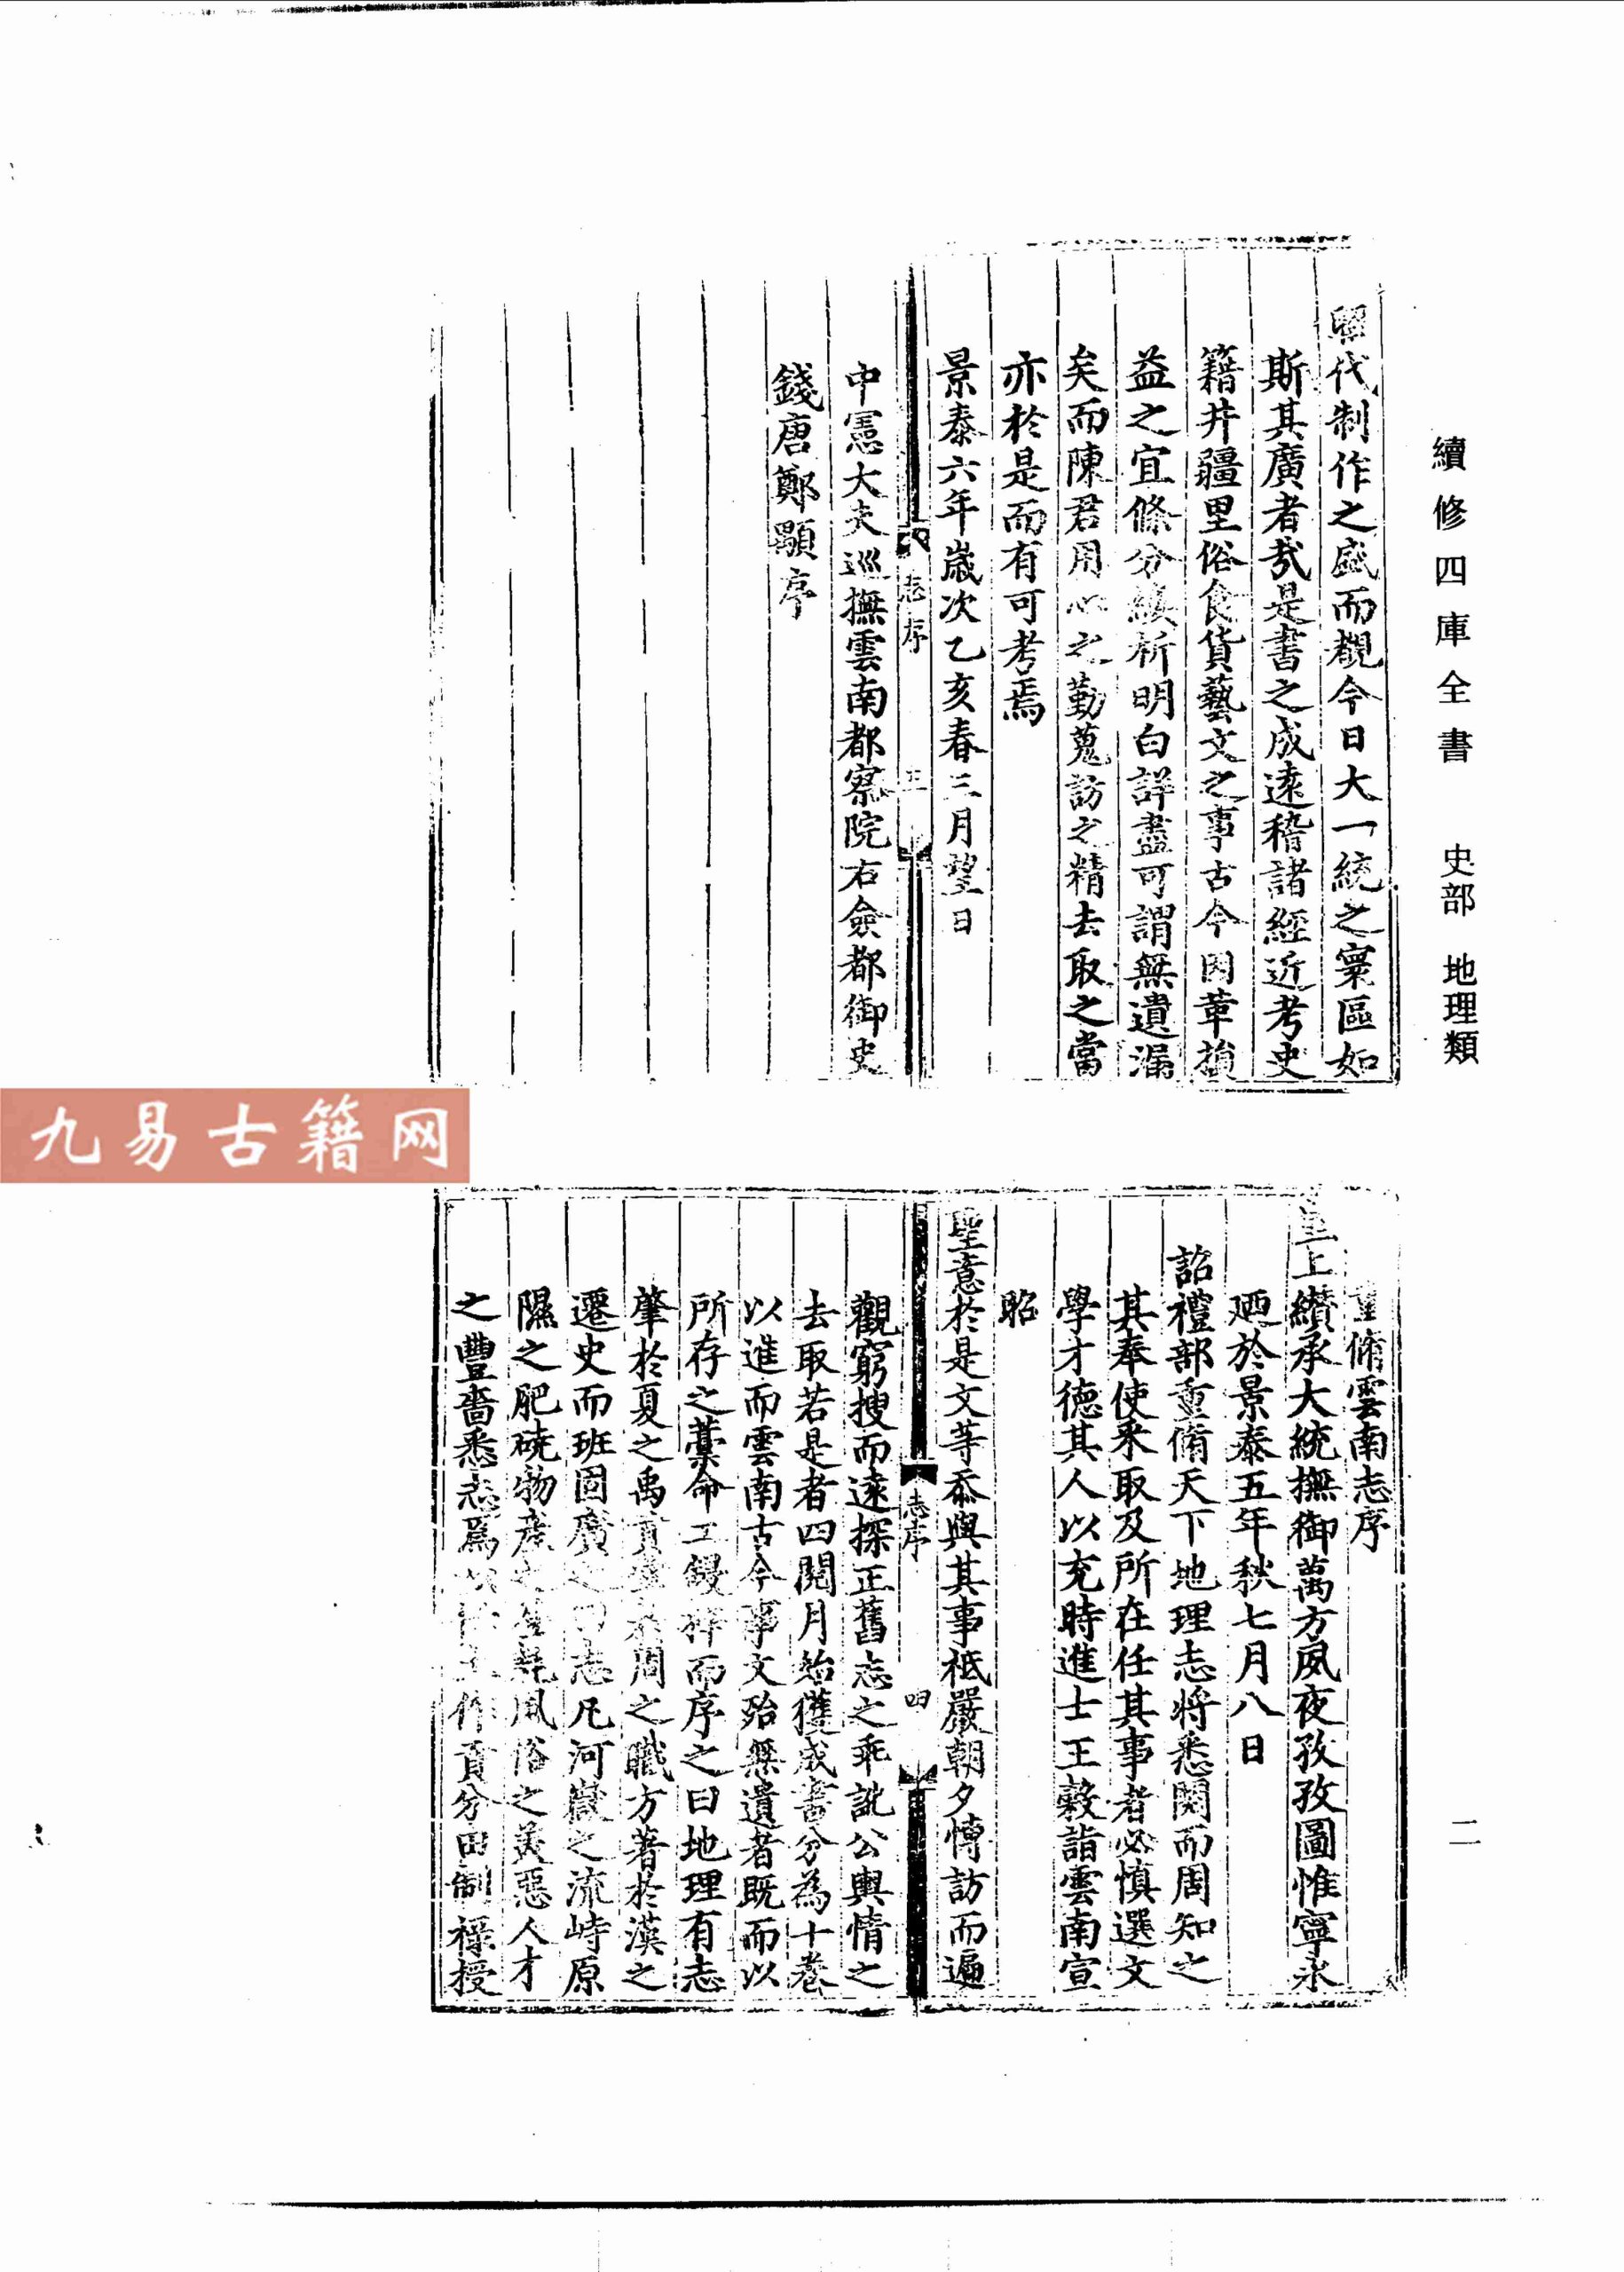 續修四庫全書 史部 地理類
二
昭代制作之盛而覩今日大一統之寰區如
斯其廣者哉是書之成遠稽諸經近考史
籍井疆里俗食貨藝文之事古今因革損
益之宜條分縷析明白詳盡可謂無遺漏
矣而陳君用心之勤蒐訪之精去取之當
亦於是而有可考焉
景泰六年歲次乙亥春三月望日
志序 三
中憲大夫巡撫雲南都察院右僉都御史
錢唐鄭顒序
九易古籍网
重脩雲南志序
皇上纘承大統撫御萬方夙夜孜孜圖惟寧永
廼於景泰五年秋七月八日
詔禮部重脩天下地理志將悉閱而周知之
其奉使采取及所在任其事者必慎選文
學才德其人以充時進士王穀詣雲南宣
昭
聖意於是文等忝與其事祗嚴朝夕愽訪而遍
志序 四
觀窮搜而遠探正舊志之乖訛公輿情之
去取若是者四閱月始獲成書分為十卷
以進而雲南古今事文殆無遺者既而以
所存之藁命工鋟梓而序之曰地理有志
肇於夏之禹貢 周之職方著於漢之
遷史而班固廣之 志凡河嶽之流峙原
隰之肥磽物産之 風俗之美惡人才
之豐嗇悉志焉 作貢分田制祿授